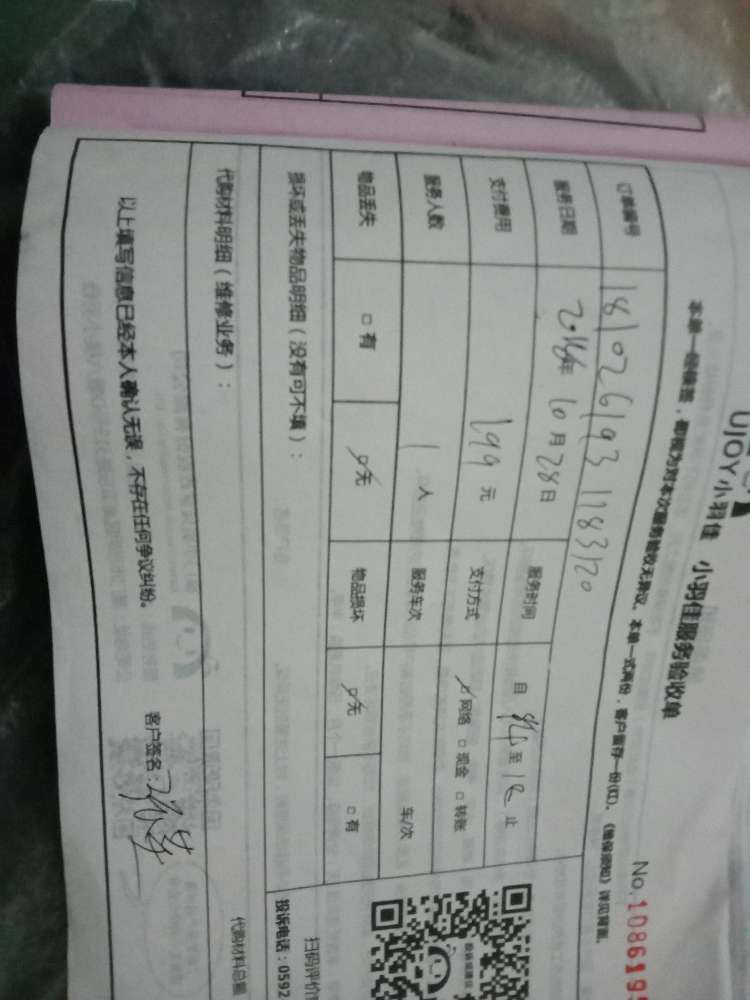 UJOY小羽佳 小羽佳服务验收单
No.1086195
本单一经签签，都视为对本次服务验收无异议。本单一式两份，客户留存一份(红)。《维保须知》详见背面。
订单编号 1810261931183120
服务日期 2018年 10月 28日 服务时间 自 至 12 止
支付费用 199 元 支付方式 网络 □ 现金 □ 转账
服务人数 1 人 服务车次 车/次
物品丢失 □ 有 无 物品损坏 无 □ 有
损坏或丢失物品明细（没有可不填）：
代购材料明细（维修业务）：
代购材料总额
以上填写信息已经本人确认无误，不存在任何争议纠纷。
客户签名：
扫码评价
投诉电话：0592